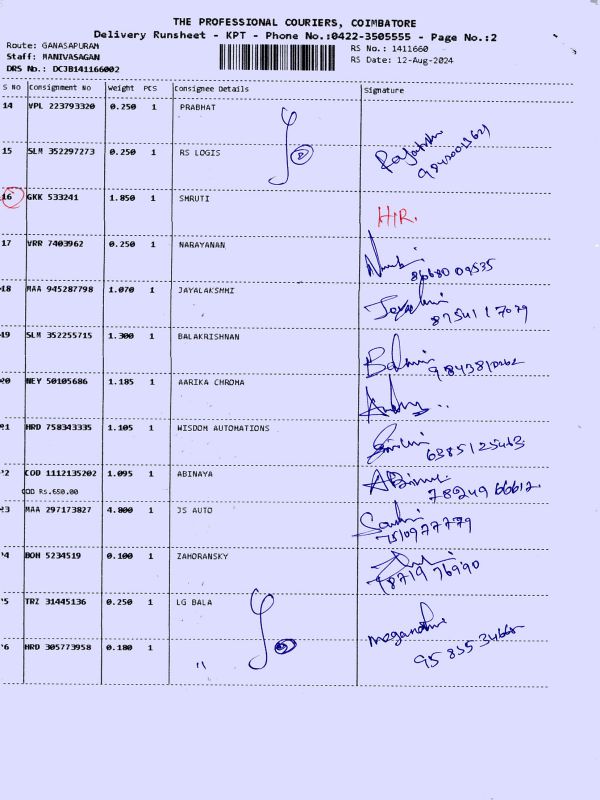 THE PROFESSIONAL COURIERS, COIMBATORE
Delivery Runsheet - KPT - Phone No.:0422-3505555 - Page No.:2
Route: GANASAPURAM
Staff: MANIVASAGAN
DRS No.: DCJB141166002
RS No.: 1411660
RS Date: 12-Aug-2024
S No Consignment No Weight PCS Consignee Details Signature
14 VPL 223793320 0.250 1 PRABHAT
15 SLM 352297273 0.250 1 RS LOGIS
16 GKK 533241 1.850 1 SMRUTI H/R.
17 VRR 7403962 0.250 1 NARAYANAN
18 MAA 945287798 1.070 1 JAYALAKSHMI 87541 17079
19 SLM 352255715 1.300 1 BALAKRISHNAN
20 NEY 50105686 1.185 1 AARIKA CHROMA
21 HRD 758343335 1.105 1 WISDOM AUTOMATIONS 6385125463
22 COD 1112135202 1.095 1 ABINAYA 78249 66612
COD Rs.650.00
23 MAA 297173827 4.800 1 JS AUTO 7510977779
24 BOM 5234519 0.100 1 ZAHORANSKY 98719 76990
25 TRZ 31445136 0.250 1 LG BALA
26 HRD 305773958 0.180 1 "